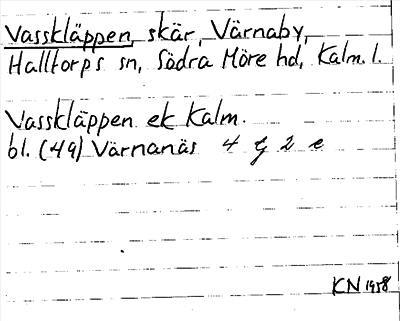 Vasskläppen, skär, Värnaby,
Halltorps sn, Södra Möre hd, Kalm. l.
Vasskläppen ek Kalm.
bl. (49) Värnanäs 4 G 2 e
KN 1958